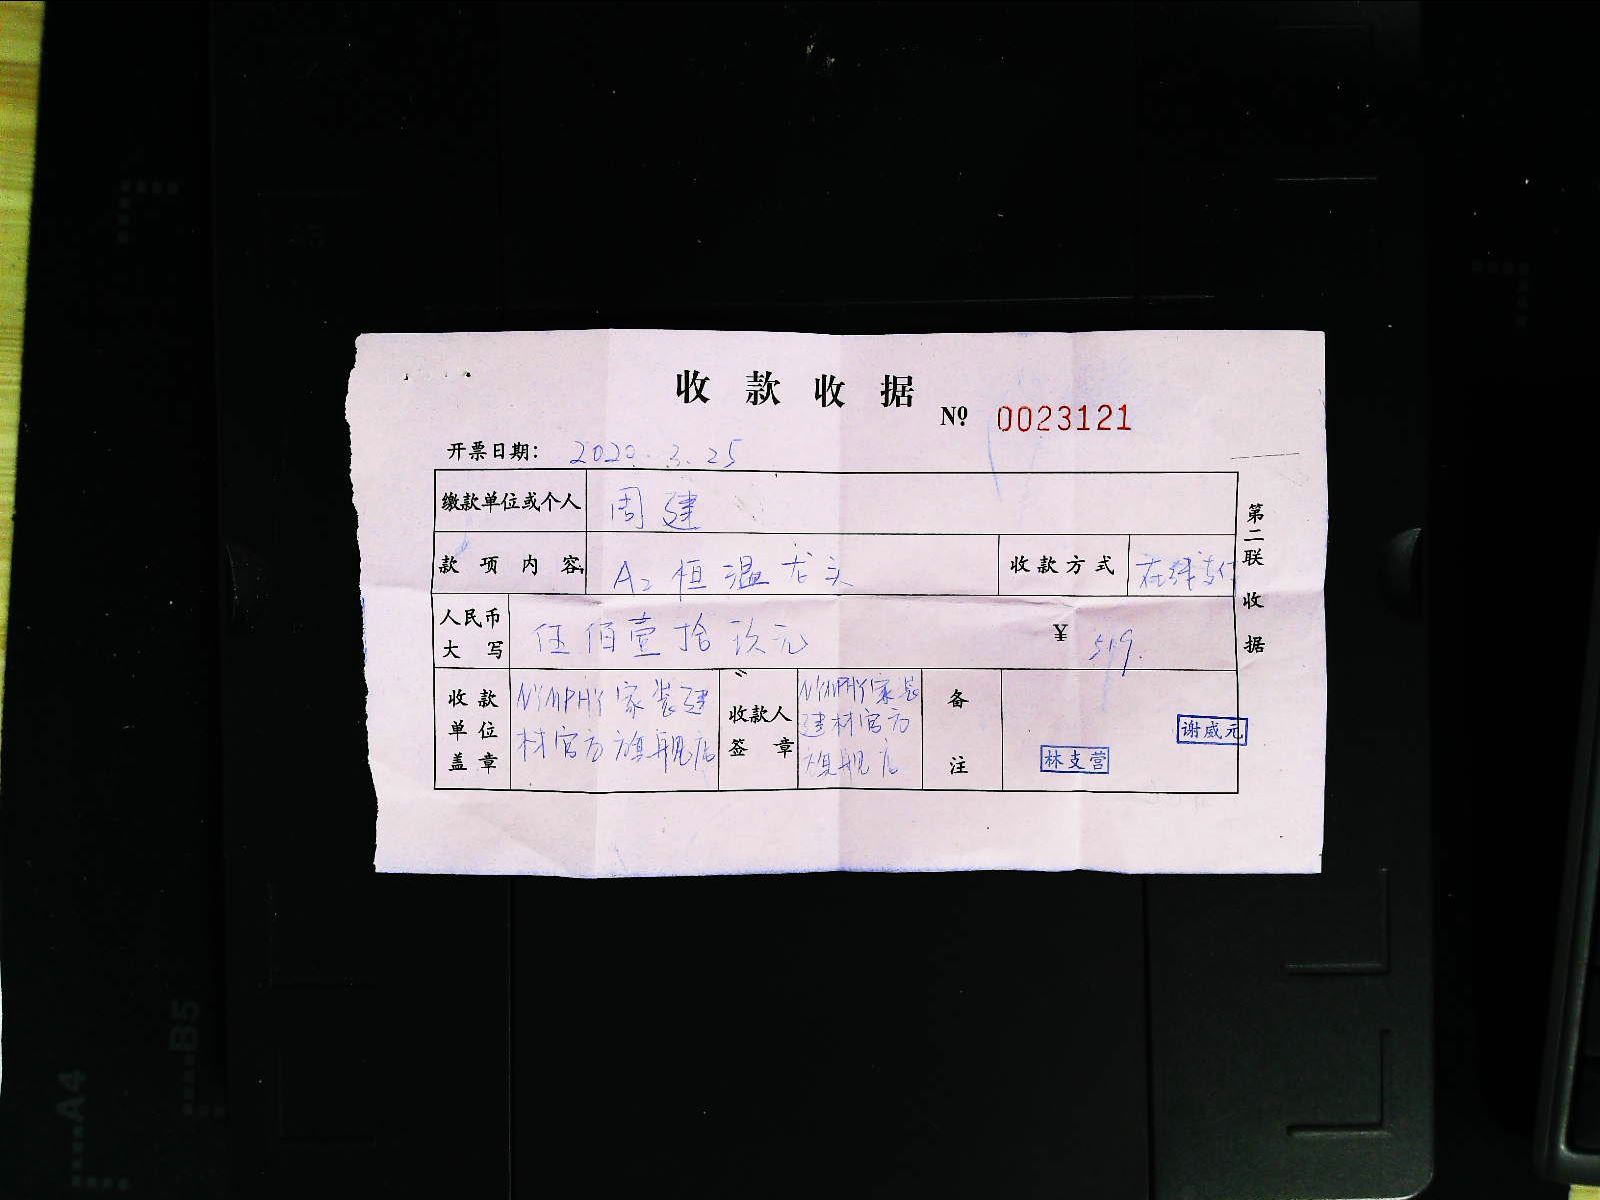 收款收据
№ 0023121
开票日期: 2020.3.25
缴款单位或个人 周建
款项内容 A2恒温龙头 收款方式 在线支付
人民币大写 伍佰壹拾玖元 ¥ 519.
收款单位盖章 NYMPHY家装建材官方旗舰店 收款人签章 NYMPHY家装建材官方旗舰店 备注 林支营 谢威元
第二联收据
A4
B5